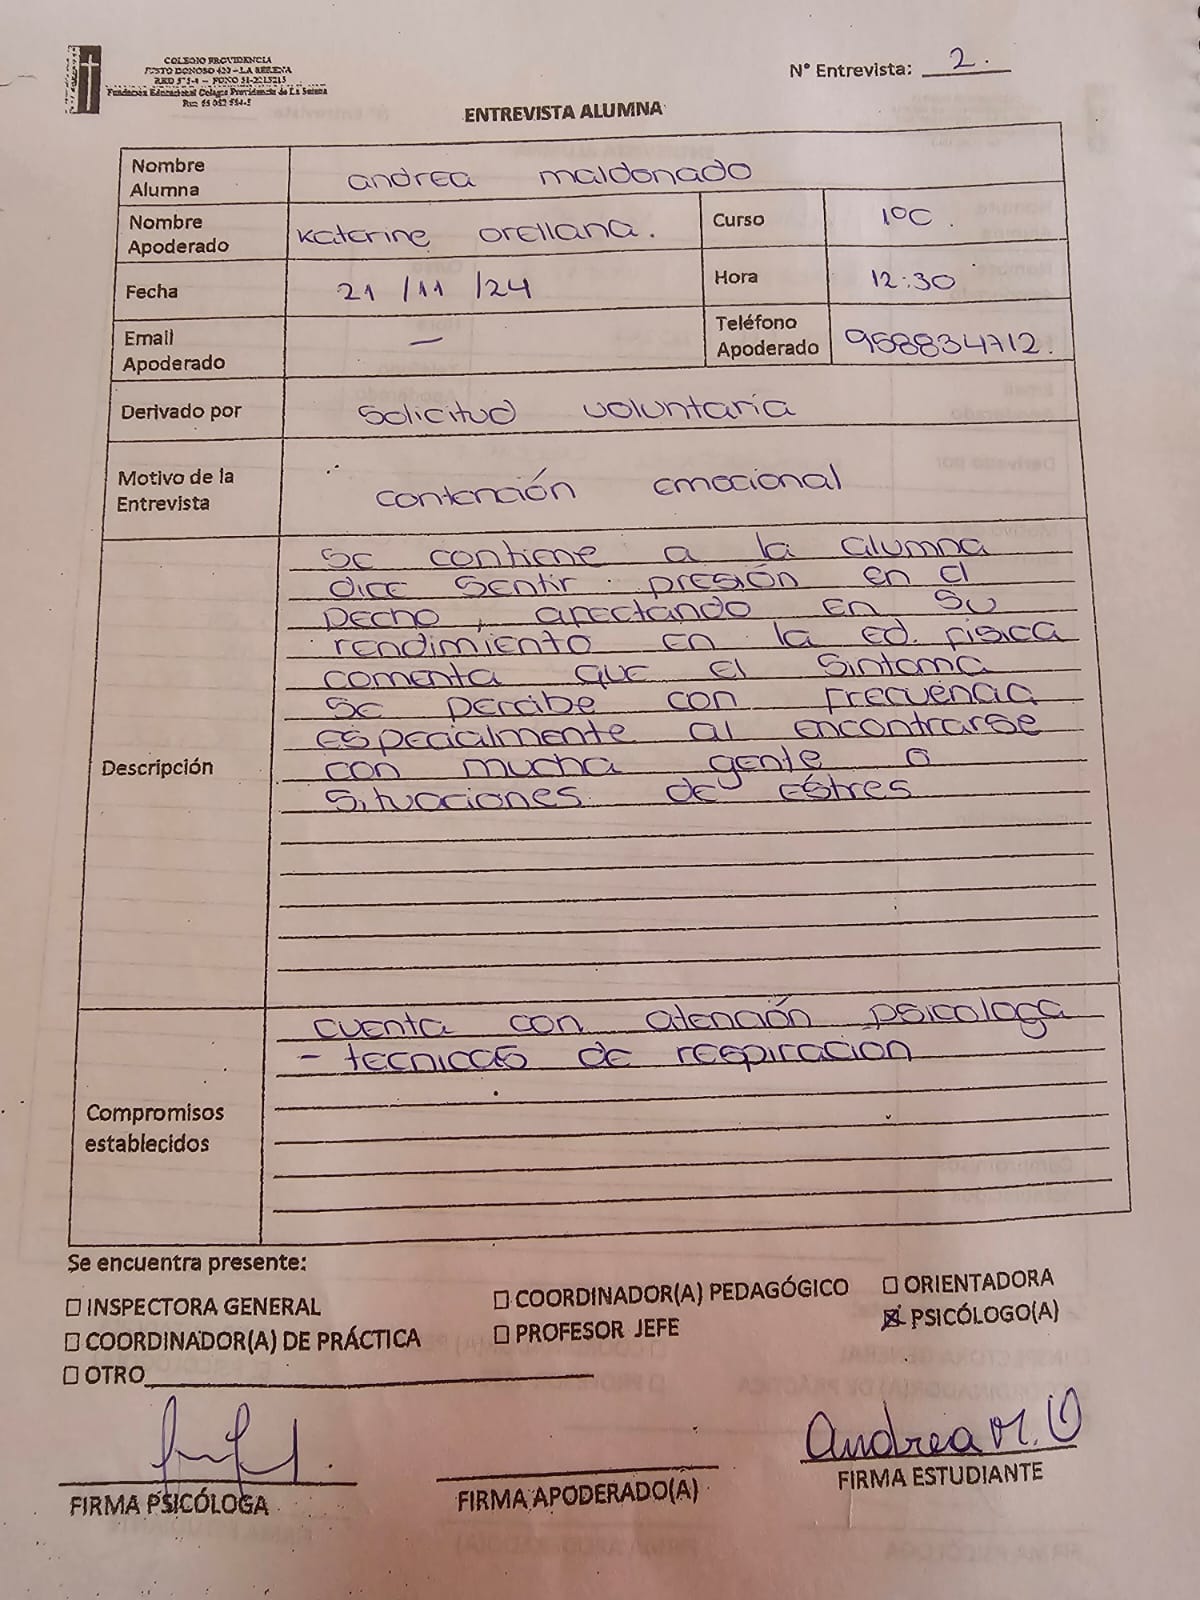 COLEGIO PROVIDENCIA
JUSTO DONOSO 420 - LA SERENA
Fundación Educacional Colegio Providencia de La Serena
N° Entrevista: 2.
ENTREVISTA ALUMNA
Nombre Alumna andrea maldonado
Nombre Apoderado Katerine orellana. Curso 1°C.
Fecha 21 /11 /24 Hora 12:30
Email Apoderado — Teléfono Apoderado 958834712.
Derivado por Solicitud voluntaria
Motivo de la Entrevista contención emocional
Descripción
Se contiene a la alumna
dice sentir presión en el
pecho, afectando en su
rendimiento en la ed. fisica
comenta que el sintoma
se percibe con frecuencia
especialmente al encontrarse
con mucha gente o
situaciones de éstres
Compromisos establecidos
cuenta con atención psicologa
- tecnicas de respiracion
Se encuentra presente:
☐ INSPECTORA GENERAL ☐ COORDINADOR(A) PEDAGÓGICO ☐ ORIENTADORA
☐ COORDINADOR(A) DE PRÁCTICA ☐ PROFESOR JEFE ☒ PSICÓLOGO(A)
☐ OTRO
Andrea M. O
FIRMA PSICÓLOGA FIRMA APODERADO(A) FIRMA ESTUDIANTE